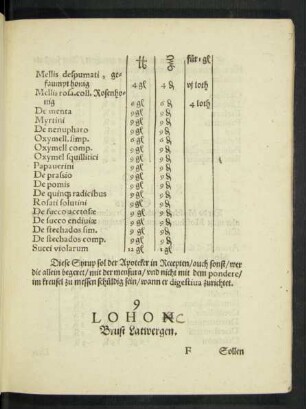 ℔ ℥ für ∙ gl
Mellis despumati, ge-
saumpt honig 4 gl 4 ₰ vj loth
Mellis rosa. coll. Rosenho-
nig 6 gl 6 ₰ 4 loth
De menta 9 gl 9 ₰
Myrtini 9 gl 9 ₰
De nenupharo 9 gl 9 ₰
Oxymell. simp. 6 gl 6 ₰
Oxymell comp. 9 gl 9 ₰
Oxymel squillitici 9 gl 9 ₰
Papauerini 9 gl 9 ₰
De prasio 9 gl 9 ₰
De pomis 9 gl 9 ₰
De quinq; radicibus 9 gl 9 ₰
Rosati solutiui 9 gl 9 ₰
De succo acetosæ 9 gl 9 ₰
De succo endiuiæ 9 gl 9 ₰
De stechados sim. 9 gl 9 ₰
De stechados comp. 9 gl 9 ₰
Succi violarum 12 gl 12 ₰
Diese Syrup sol der Apoteker in Recepten/ auch sonst/ wer
die allein begeret/ mit der mensura/ vnd nicht mit dem pondere/
im kreusel zu messen schüldig sein/ wann er digestiua zurichtet.
9
LOHOC
Brust Latwergen.
F Sollen